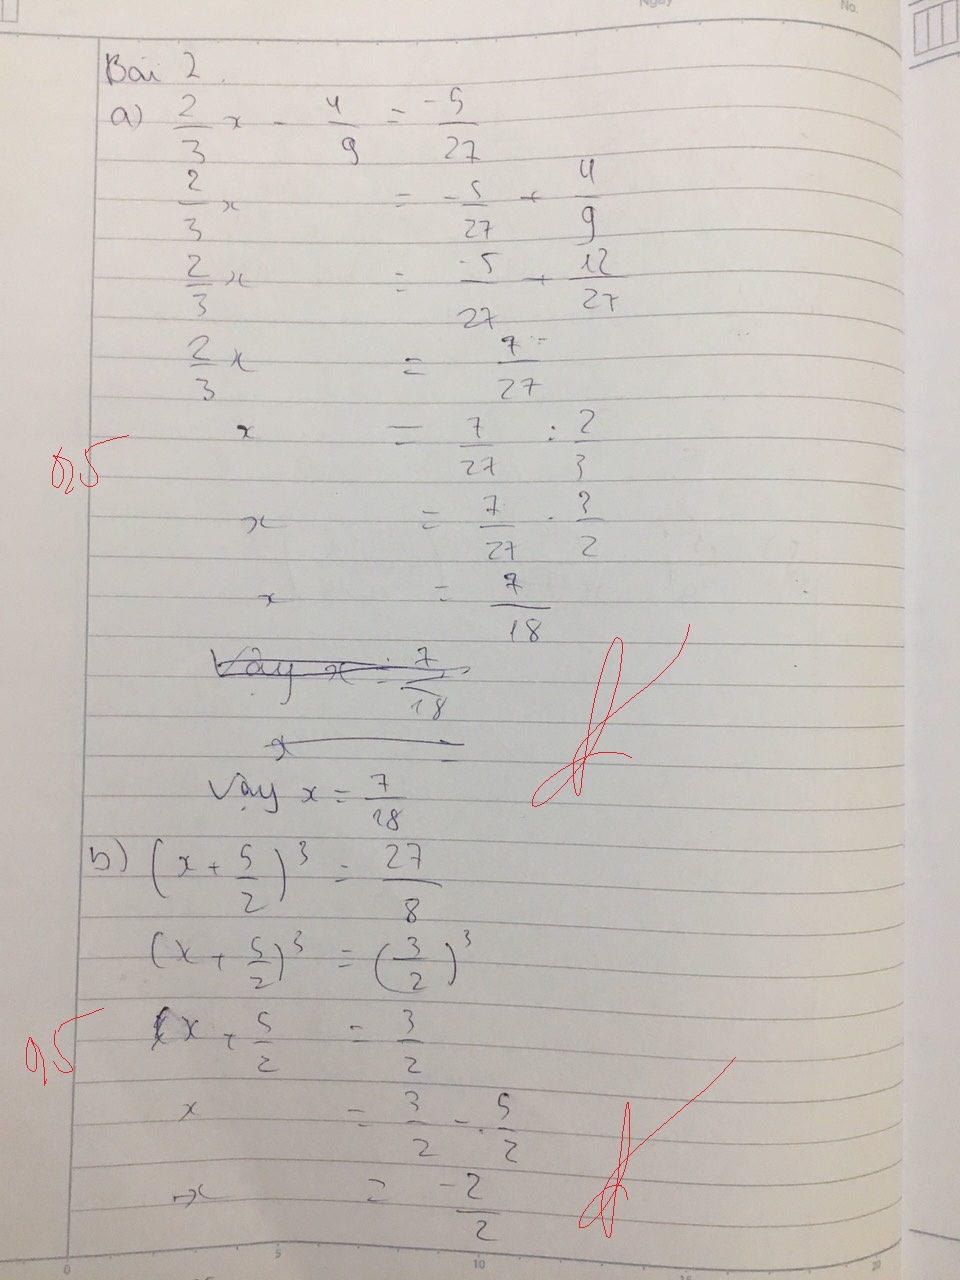 Ngày No.
Bài 2.
a) 2/3 x - 4/9 = -5/27
2/3 x = -5/27 + 4/9
2/3 x = -5/27 + 12/27
2/3 x = 7/27
x = 7/27 : 2/3
0,5
x = 7/27 . 3/2
x = 7/18
Vậy x = 7/18
x =
Vậy x = 7/18
b) (x + 5/2)^3 = 27/8
(x + 5/2)^3 = (3/2)^3
x + 5/2 = 3/2
0,5
x = 3/2 - 5/2
x = -2/2
0 5 10 15 20